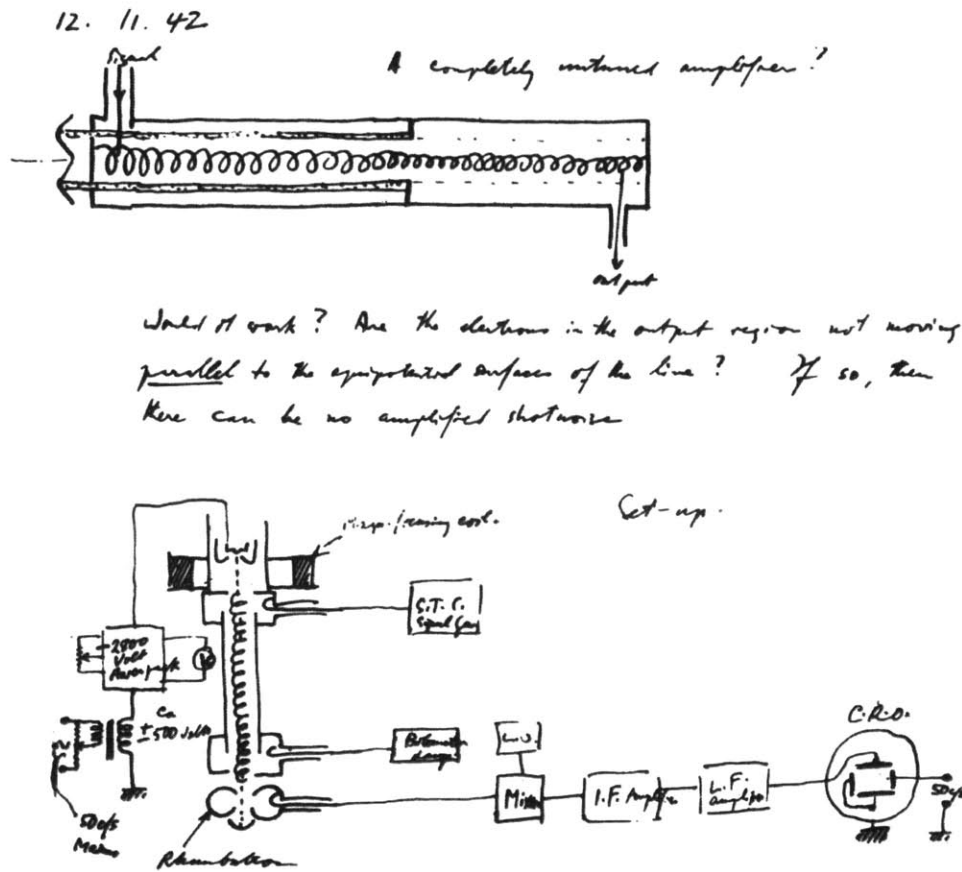 12. 11. 42
Signal
A completely untuned amplifier?
output
Would it work? Are the electrons in the output region not moving
parallel to the equipotential surfaces of the line? If so, then
there can be no amplified shotnoise
Set-up.
Magn. focusing coil.
S.T.C.
Signal Gen
2800
Volt
Power pack
V
Ca
± 500 Volts
50 c/s
Mains
Bolometer
L.O.
Mixer
I.F. Amplifier
L.F.
amplifier
C.R.O.
50 c/s
Rhumbatron